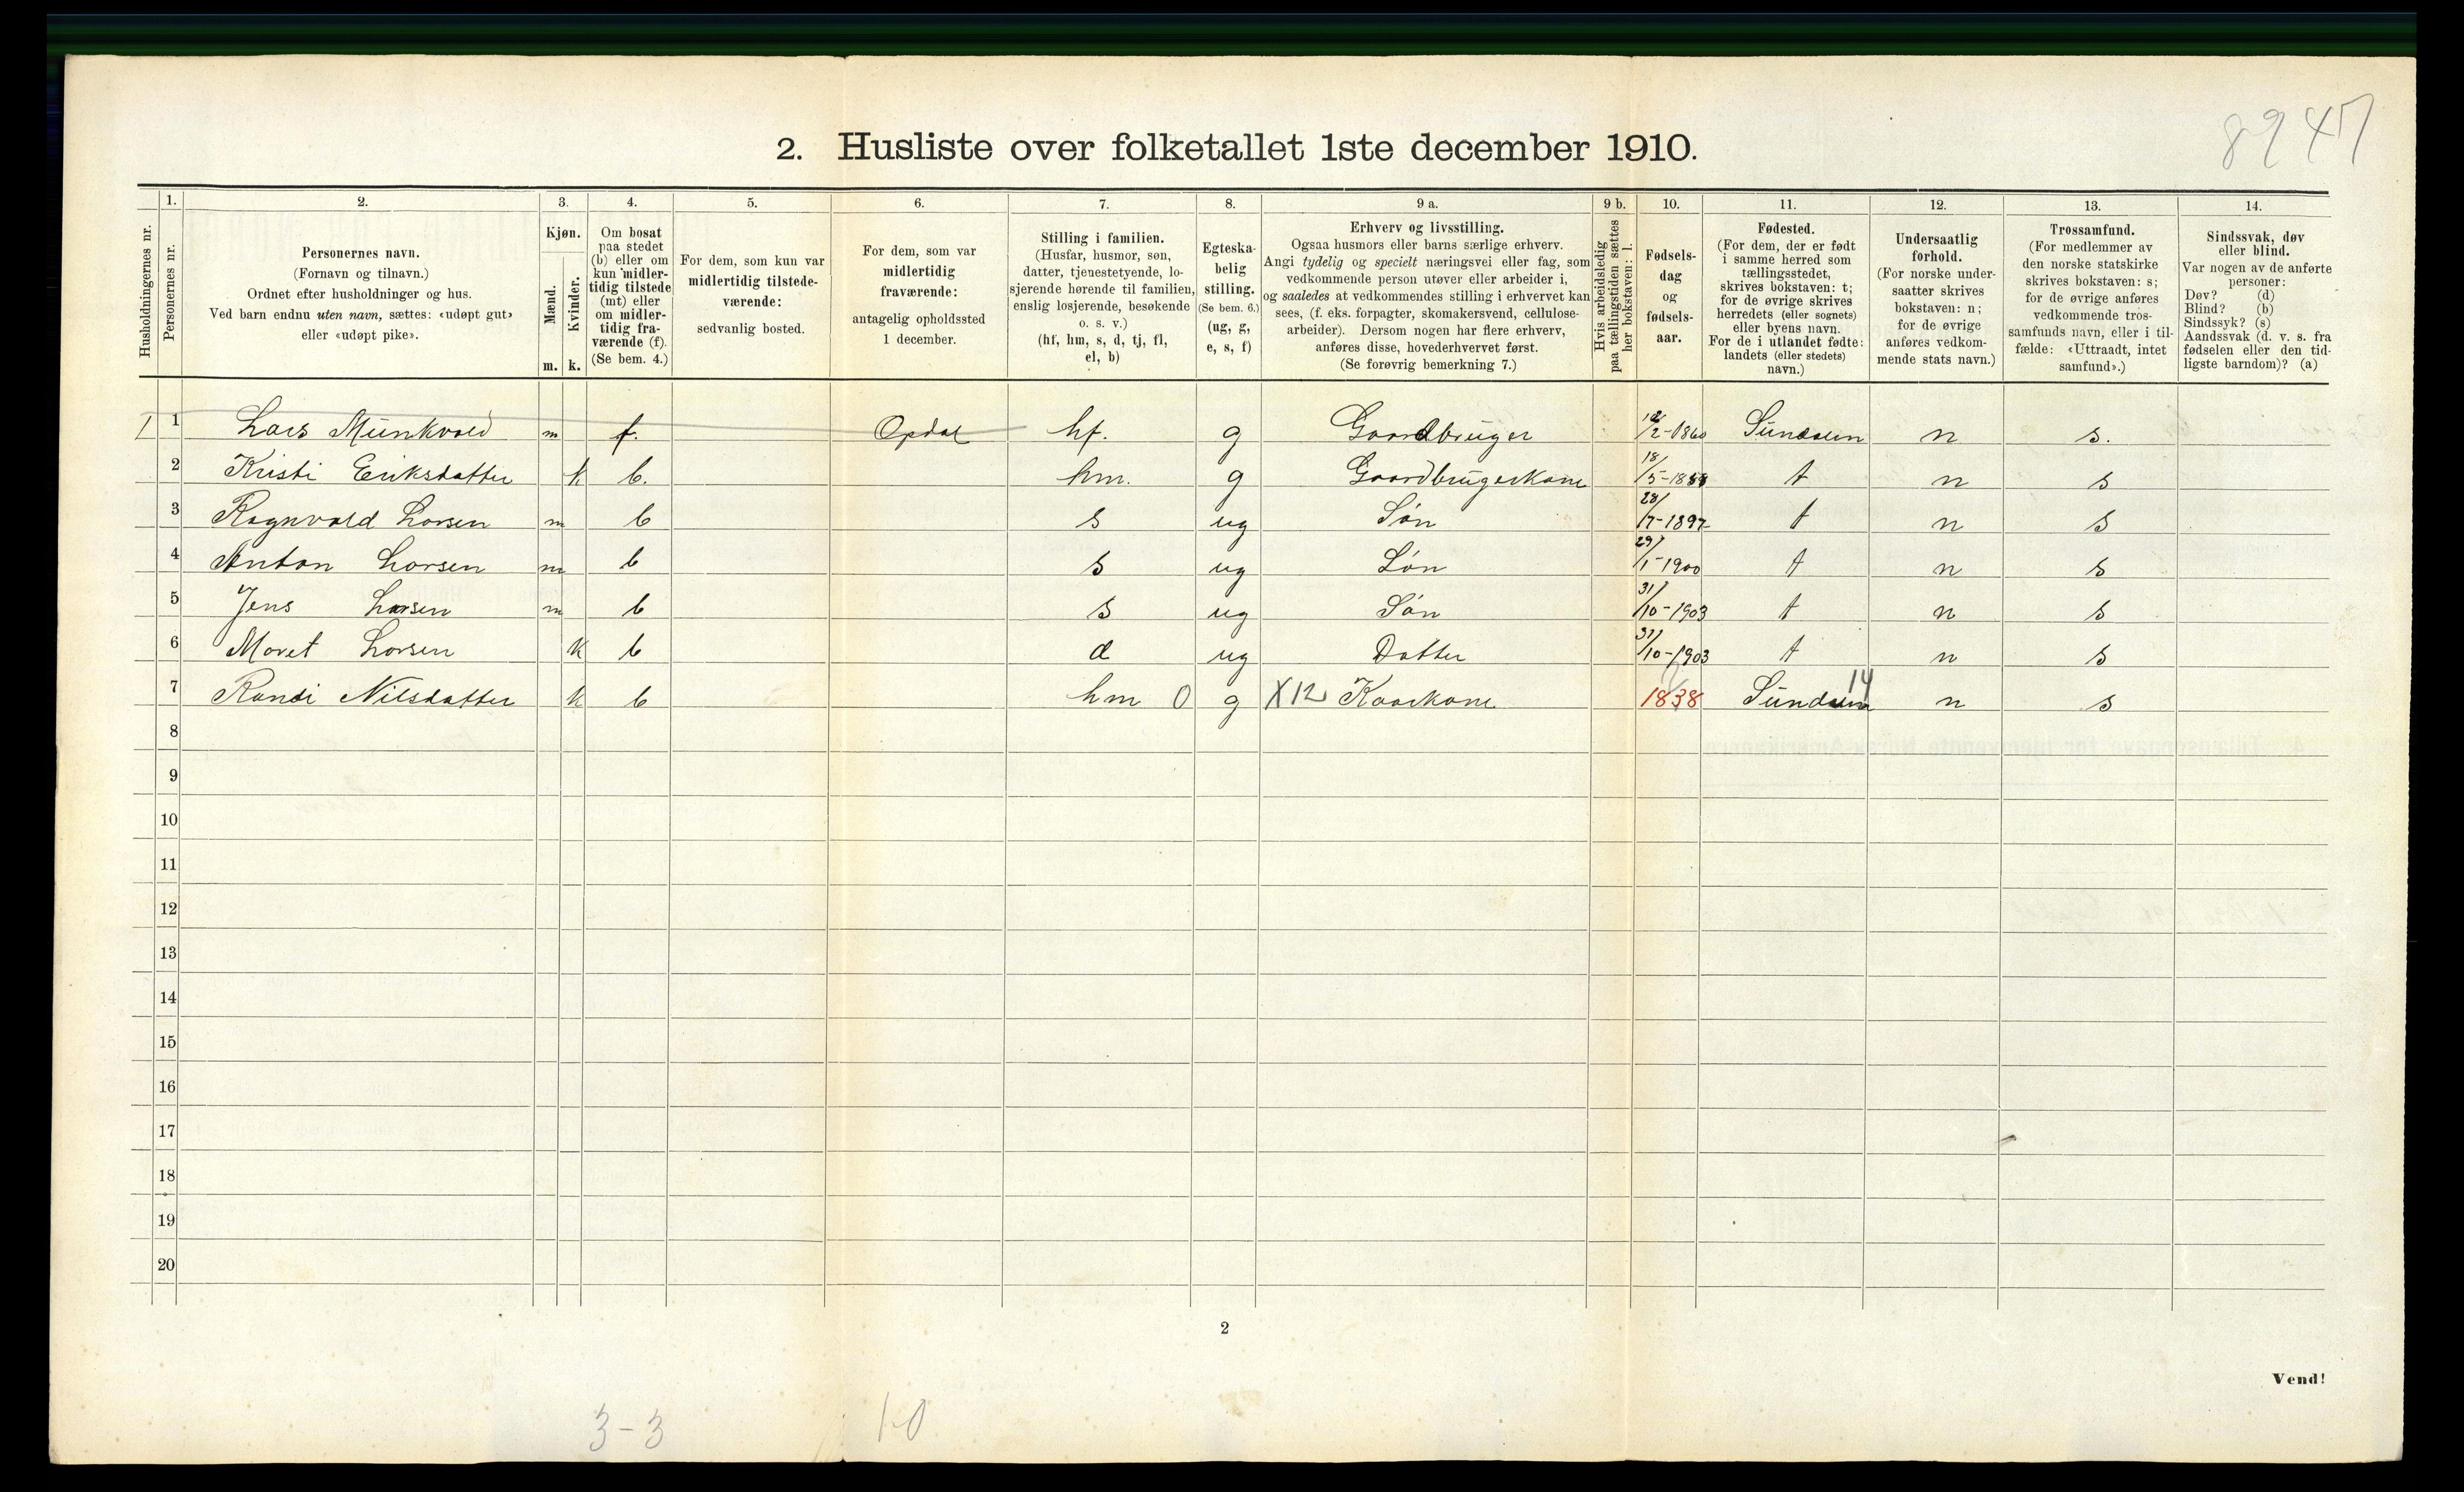 8947
2. Husliste over folketallet 1ste december 1910.
Husholdningernes nr.
1. Personernes nr.
2.
Personernes navn.
(Fornavn og tilnavn.)
Ordnet efter husholdninger og hus.
Ved barn endnu uten navn, sættes: «udøpt gut»
eller «udøpt pike».
3.
Kjøn.
Mænd. Kvinder.
m. k.
4.
Om bosat
paa stedet
(b) eller om
kun midler-
tidig tilstede
(mt) eller
om midler-
tidig fra-
værende (f).
(Se bem. 4.)
5.
For dem, som kun var
midlertidig tilstede-
værende:
sedvanlig bosted.
6.
For dem, som var
midlertidig
fraværende:
antagelig opholdssted
1 december.
7.
Stilling i familien.
(Husfar, husmor, søn,
datter, tjenestetyende, lo-
sjerende hørende til familien,
enslig losjerende, besøkende
o. s. v.)
(hf, hm, s, d, tj, fl,
el, b)
8.
Egteska-
belig
stilling.
(Se bem. 6.)
(ug, g,
e, s, f)
9 a.
Erhverv og livsstilling.
Ogsaa husmors eller barns særlige erhverv.
Angi tydelig og specielt næringsvei eller fag, som
vedkommende person utøver eller arbeider i,
og saaledes at vedkommendes stilling i erhvervet kan
sees, (f. eks. forpagter, skomakersvend, cellulose-
arbeider). Dersom nogen har flere erhverv,
anføres disse, hovederhvervet først.
(Se forøvrig bemerkning 7.)
9 b.
Hvis arbeidsledig
paa tællingstiden sættes
her bokstaven: l.
10.
Fødsels-
dag
og
fødsels-
aar.
11.
Fødested.
(For dem, der er født
i samme herred som
tællingsstedet,
skrives bokstaven: t;
for de øvrige skrives
herredets (eller sognets)
eller byens navn.
For de i utlandet fødte:
landets (eller stedets)
navn.)
12.
Undersaatlig
forhold.
(For norske under-
saatter skrives
bokstaven: n;
for de øvrige
anføres vedkom-
mende stats navn.)
13.
Trossamfund.
(For medlemmer av
den norske statskirke
skrives bokstaven: s;
for de øvrige anføres
vedkommende tros-
samfunds navn, eller i til-
fælde: «Uttraadt, intet
samfund».)
14.
Sindssvak, døv
eller blind.
Var nogen av de anførte
personer:
Døv? (d)
Blind? (b)
Sindssyk? (s)
Aandssvak (d. v. s. fra
fødselen eller den tid-
ligste barndom)? (a)
1 Lars Munkvold m f. Opdal hf. g Gaardbruger /2-1860 Sundalen n s.
2 Kristi Eriksdatter k b. hm. g Gaardbrugerkone 18/5-1858 t n s
3 Ragnvald Larsen m b s ug Søn 28/7-1897 t n s
4 Anton Larsen m b s ug Søn 29/1-1900 t n s
5 Jens Larsen m b s ug Søn 31/10-1903 t n s
6 Maret Larsen k b d ug Datter 31/10-1903 t n s
7 Randi Nilsdatter k b hm 0 g X12 Kaarkone 1838 Sundalen 14 n s
8
9
10
11
12
13
14
15
16
17
18
19
20
2
Vend!
3-3 1-0